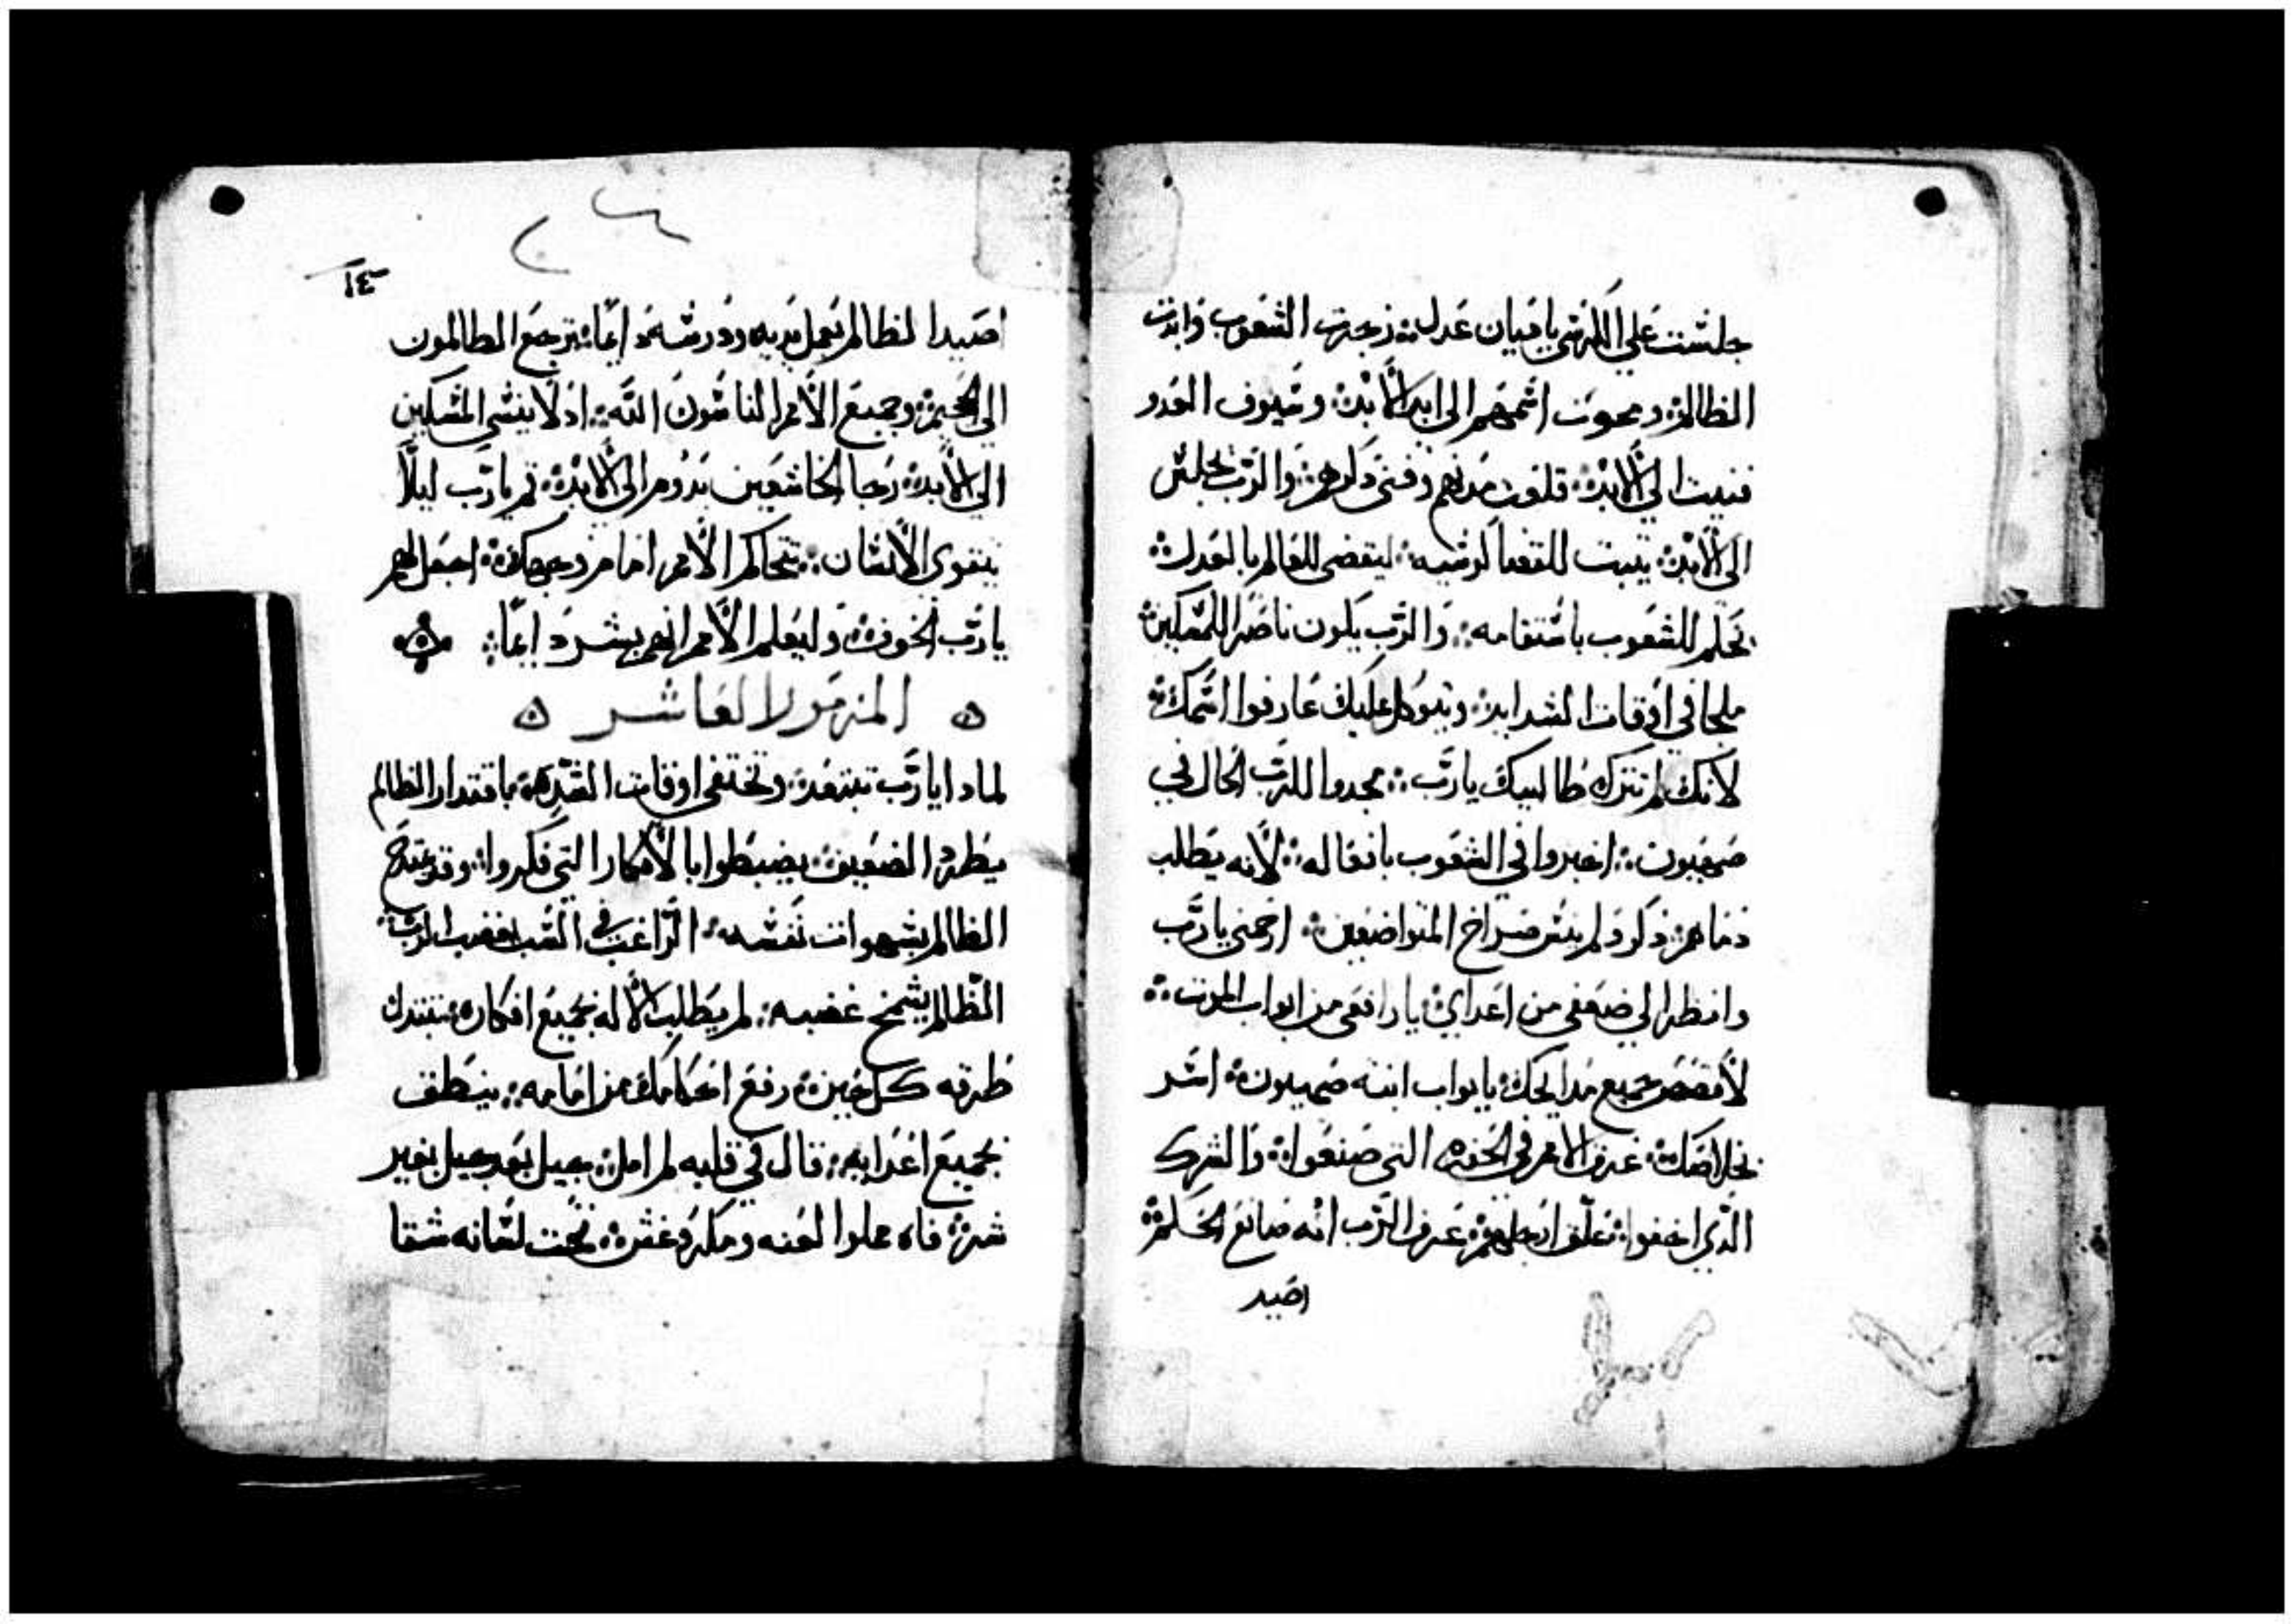 جلست علي الكرسي ياديان عدل ؞ زجرت الشعوب وابدت
الظالم ؞ ومحوت اسمهم الى ابد الأبد ؞ وسيوف العدو
فنيت الي الأبد ؞ قلعت مدنهم وفني ذكرهم ؞ والرب يجلس
الى الأبد ؞ يثبت للقضا كرسيه ؞ ليقضى للعالم بالعدل ؞
يحكم للشعوب باستقامه ؞ والرب يكون ناصر المسكين ؞
ملجا في اوقات الشدايد ؞ ويتوكل عليك عارفوا اسمك ؞
لأنك لم تترك طالبيك يارب ؞ مجدوا للرب الحال في
صهيون ؞ اخبروا في الشعوب بافعاله ؞ لأنه يطلب
دماهم ذكر ولم ينس صراخ المتواضعين ؞ ارحمني يارب
وانظر الي ضعفي من اعداي ؞ يارافعى من ابواب الموت ؞
لأقصص جميع مدايحك ؞ بابواب ابنه صهيون ؞ اسر
بخلاصك ؞ غرق الأمم في الحفره التي صنعوا ؞ والشرك
الذي اخفوا ؞ تعلق ارجلهم ؞ عرف الرب انه صانع الحكم ؞
اصيد
١٤
اصيد الظالم بعمل يديه ودرسه دايما ؞ يرجع الظالمون
الى الجحيم ؞ وجميع الأمم الناسون الله ؞ اذ لا ينسي المسكين
الي الأبد ؞ رجا الخاشعين يدوم الى الأبد ؞ قم يارب ليلا
يتقوى الأنسان ؞ تتحاكم الأمم امام وجهك ؞ اجعل لهم
يارب الخوف ؞ وليعلم الأمم انهم بشر دايما ؞
المزمور العاشر
لماذا يارب تبتعد ؞ وتختفي اوقات الشده ؞ باقتدار الظالم
يطرد الضعيف ؞ يضبطوا بالأفكار التي فكروا ؞ وقد يمتدح
الظالم بشهوات نفسه ؞ الراغب في السب اغضب الرب ؞
الظالم يشمخ غضبه ؞ لم يطلب الأله بجميع افكاره ؞ تتبدل
طرقه كل حين ؞ رفع احكامك من امامه ؞ ينطلق
بجميع اعدايه ؞ قال في قلبه لم امل ؞ جيل بعد جيل بغير
شر ؞ فاه مملوا لعنه ومكر وغش ؞ تحت لسانه شقا